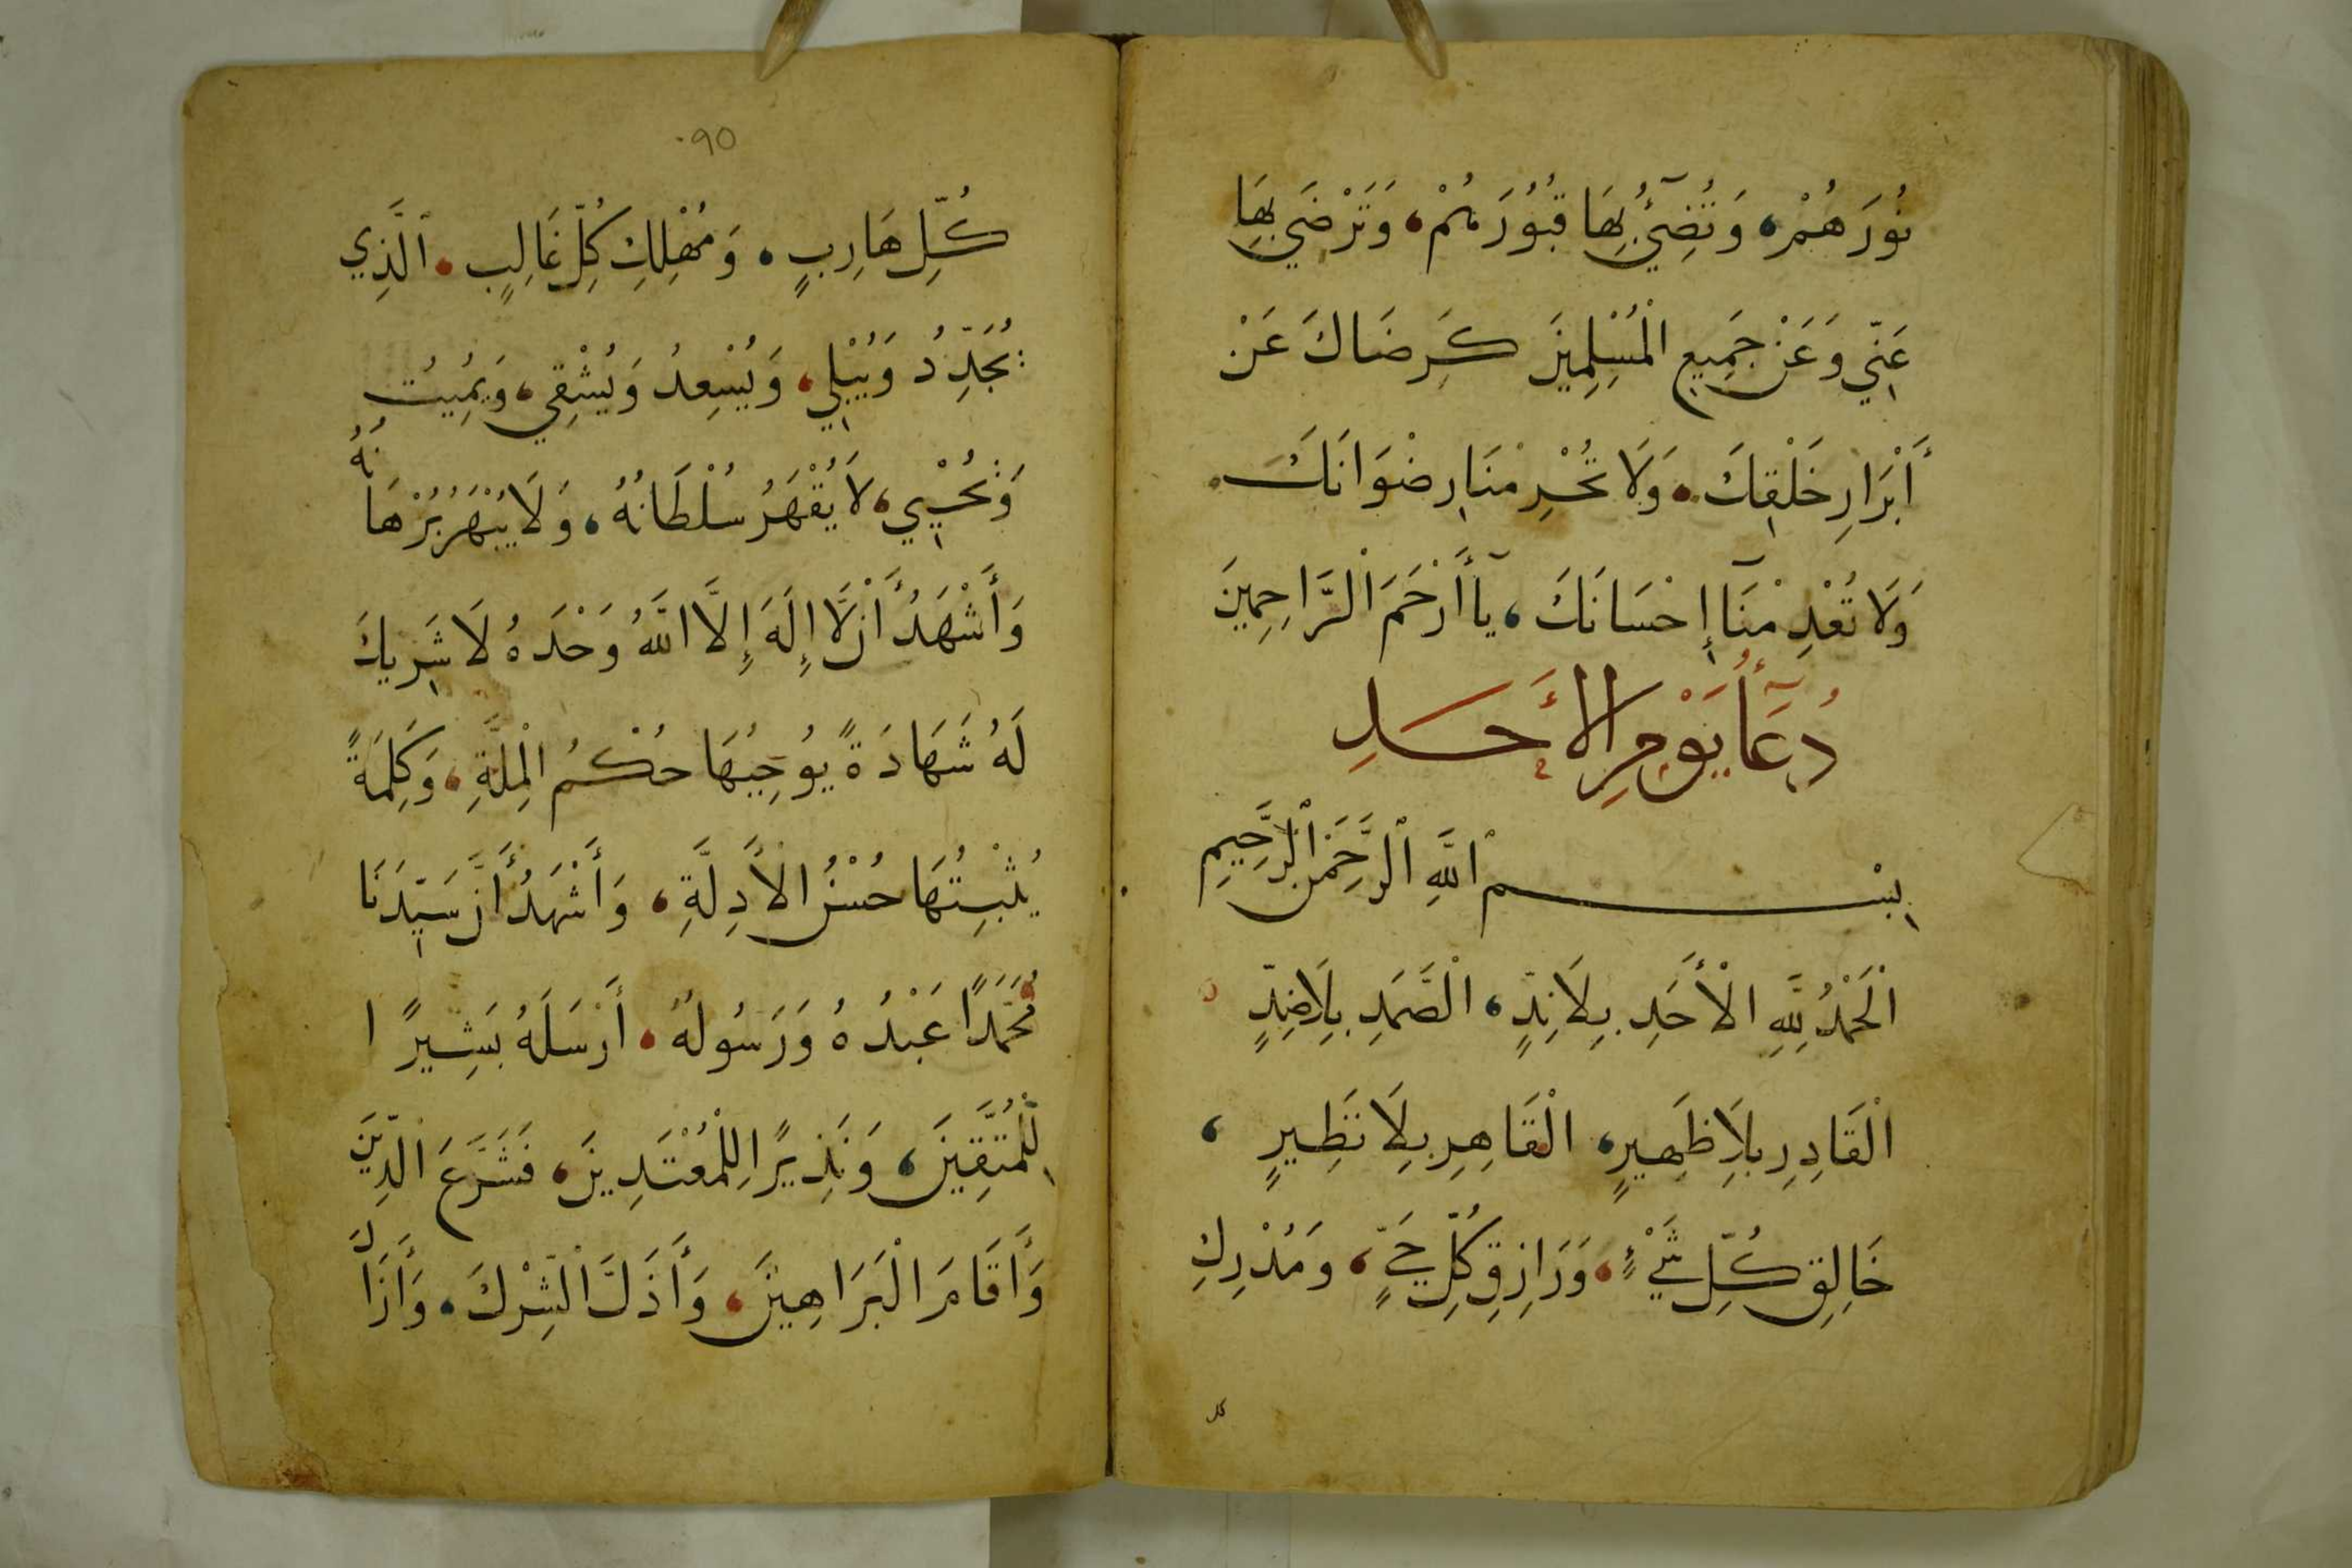 نُورَهُمْ، وَتُضِيٓئُ بِهَا قُبُورَهُمْ، وَتَرْضَي بِهَا
عَنِّي وَعَنْ جَمِيعِ الْمُسْلِمِينَ كَرِضَاكَ عَنْ
أَبْرَارِ خَلْقِكَ، وَلَا تُحْرِمْنَا رِضْوَانَكَ
وَلَا تُعْدِمْنَآ إِحْسَانَكَ، يَآ أَرْحَمَ الْرَّاحِمِينَ
دُعَآءُ يَوْمِ الأَحَدِ
بِسْمِ اللَّهِ الرَّحْمَنِ الرَّحِيمِ
الْحَمْدُ لِلَّهِ الْأَحَدِ بِلَا نِدٍّ، الْصَّمَدِ بِلَا ضِدٍّ
الْقَادِرِ بِلَا ظَهِيرٍ، الْقَاهِرِ بِلَا نَظِيرٍ،
خَالِقِ كُلِّ شَيْءٍ، وَرَازِقِ كُلِّ حَيٍّ، وَمُدْرِكِ
كل
٠٩٥
كُلِّ هَارِبٍ، وَمُهْلِكِ كُلِّ غَالِبٍ، الَّذِي
يُجَدِّدُ وَيُبْلِي، وَيُسْعِدُ وَيُشْقِي، وَيُمِيتُ
وَيُحْيِي، لَا يُقْهَرُ سُلْطَانُهُ، وَلَا يُبْهَرُ بُرْهَانُهُ
وَأَشْهَدُ أَنْ لَّا إِلَهَ إِلَّا اللَّهُ وَحْدَهُ لَا شَرِيكَ
لَهُ شَهَادَةً يُوجِبُهَا حُكْمُ الْمِلَّةِ، وَكَلِمَةً
يُثْبِتُهَا حُسْنُ الْأَدِلَّةِ، وَأَشْهَدُ أَنَّ سَيِّدَنَا
مُحَمَّدًا عَبْدُهُ وَرَسُولُهُ، أَرْسَلَهُ بَشِيرًا
لِلْمُتَّقِينَ، وَنَذِيرًا لِلْمُعْتَدِينَ، فَشَرَّعَ الدِّينَ
وَأَقَامَ الْبَرَاهِينَ، وَأَذَلَّ الْشِّرْكَ، وَأَزَالَ